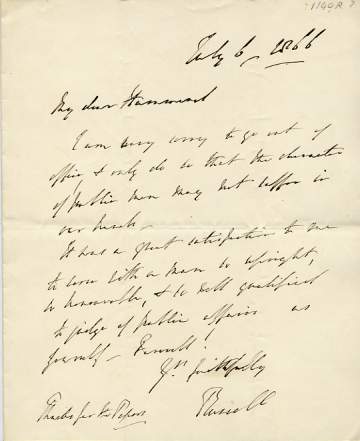 July 6, 1866
My dear
I am very sorry to go out of
office & only do so that the character
of public men may not suffer in
our hands -
It was a great satisfaction to me
to work with a man so upright,
so honourable, & so well qualified
to judge of public affairs as
yourself - Farewell!
Yrs faithfully
Russell
Thanks for the Papers